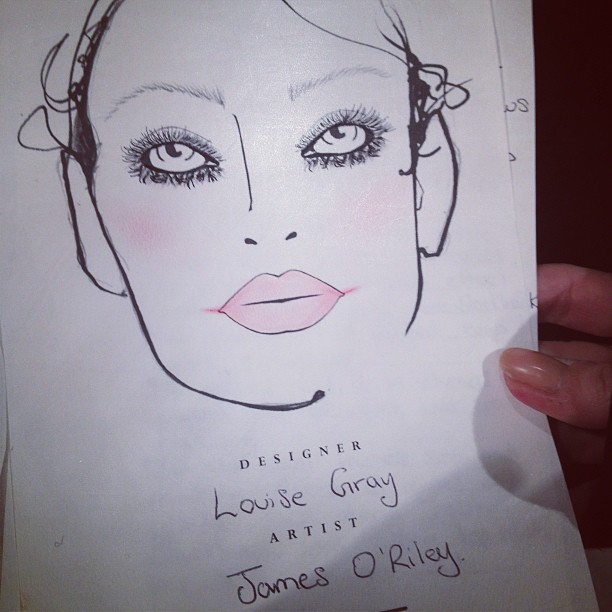 DESIGNER
Louise Gray
ARTIST
James O'Riley.